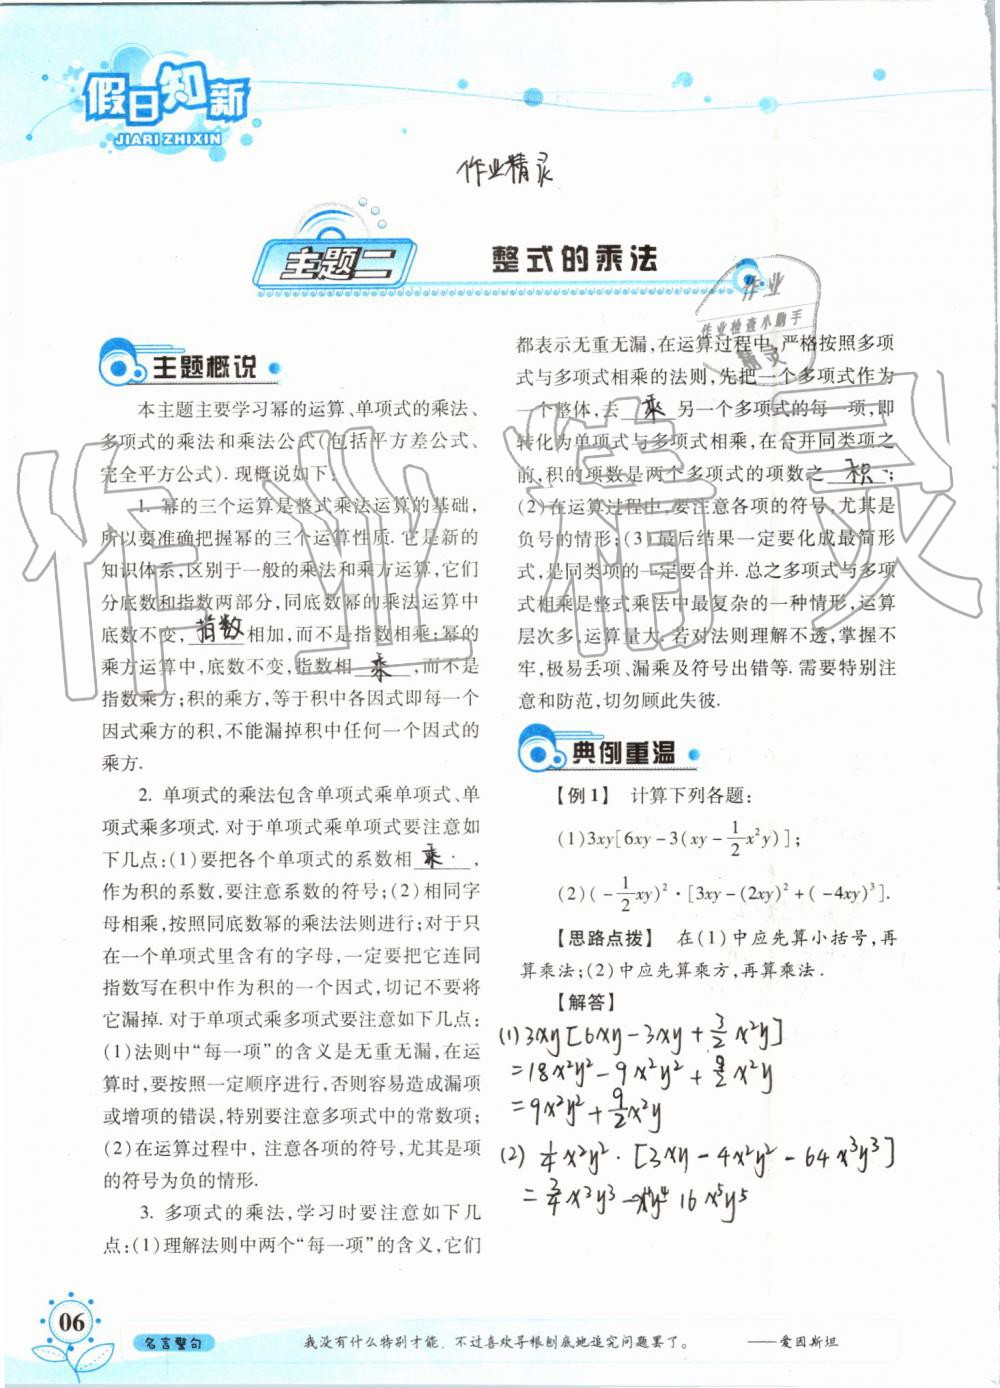 假日知新
JIARI ZHIXIN
作业精灵
主题二
整式的乘法
作业
作业检查小助手
精灵
主题概说
本主题主要学习幂的运算、单项式的乘法、
多项式的乘法和乘法公式(包括平方差公式、
完全平方公式). 现概说如下:
1. 幂的三个运算是整式乘法运算的基础,
所以要准确把握幂的三个运算性质. 它是新的
知识体系,区别于一般的乘法和乘方运算,它们
分底数和指数两部分,同底数幂的乘法运算中
底数不变, 指数 相加,而不是指数相乘;幂的
乘方运算中,底数不变,指数相 乘 ,而不是
指数乘方;积的乘方,等于积中各因式即每一个
因式乘方的积,不能漏掉积中任何一个因式的
乘方.
2. 单项式的乘法包含单项式乘单项式、单
项式乘多项式. 对于单项式乘单项式要注意如
下几点:(1)要把各个单项式的系数相 乘 ,
作为积的系数,要注意系数的符号;(2)相同字
母相乘,按照同底数幂的乘法法则进行;对于只
在一个单项式里含有的字母,一定要把它连同
指数写在积中作为积的一个因式,切记不要将
它漏掉. 对于单项式乘多项式要注意如下几点:
(1)法则中“每一项”的含义是无重无漏,在运
算时,要按照一定顺序进行,否则容易造成漏项
或增项的错误,特别要注意多项式中的常数项;
(2)在运算过程中, 注意各项的符号,尤其是项
的符号为负的情形.
3. 多项式的乘法,学习时要注意如下几
点:(1)理解法则中两个“每一项”的含义,它们
都表示无重无漏,在运算过程中,严格按照多项
式与多项式相乘的法则,先把一个多项式作为
一个整体,去 乘 另一个多项式的每一项,即
转化为单项式与多项式相乘,在合并同类项之
前,积的项数是两个多项式的项数之 积 ;
(2)在运算过程中,要注意各项的符号,尤其是
负号的情形;(3)最后结果一定要化成最简形
式,是同类项的一定要合并. 总之多项式与多项
式相乘是整式乘法中最复杂的一种情形,运算
层次多,运算量大. 若对法则理解不透,掌握不
牢,极易丢项、漏乘及符号出错等. 需要特别注
意和防范,切勿顾此失彼.
典例重温
【例1】 计算下列各题:
(1)3xy[6xy-3(xy-1/2x²y)];
(2)(-1/2xy)²·[3xy-(2xy)²+(-4xy)³].
【思路点拨】 在(1)中应先算小括号,再
算乘法;(2)中应先算乘方,再算乘法.
【解答】
(1)3xy[6xy-3xy+3/2x²y]
=18x²y²-9x²y²+9/2x²y
=9x²y²+9/2x²y
(2) 1/4x²y²·[3xy-4x²y²-64x³y³]
=3/4x³y³-x⁴y⁴ 16x⁵y⁵
06
名言警句
我没有什么特别才能,不过喜欢寻根刨底地追究问题罢了。
——爱因斯坦
作业精灵